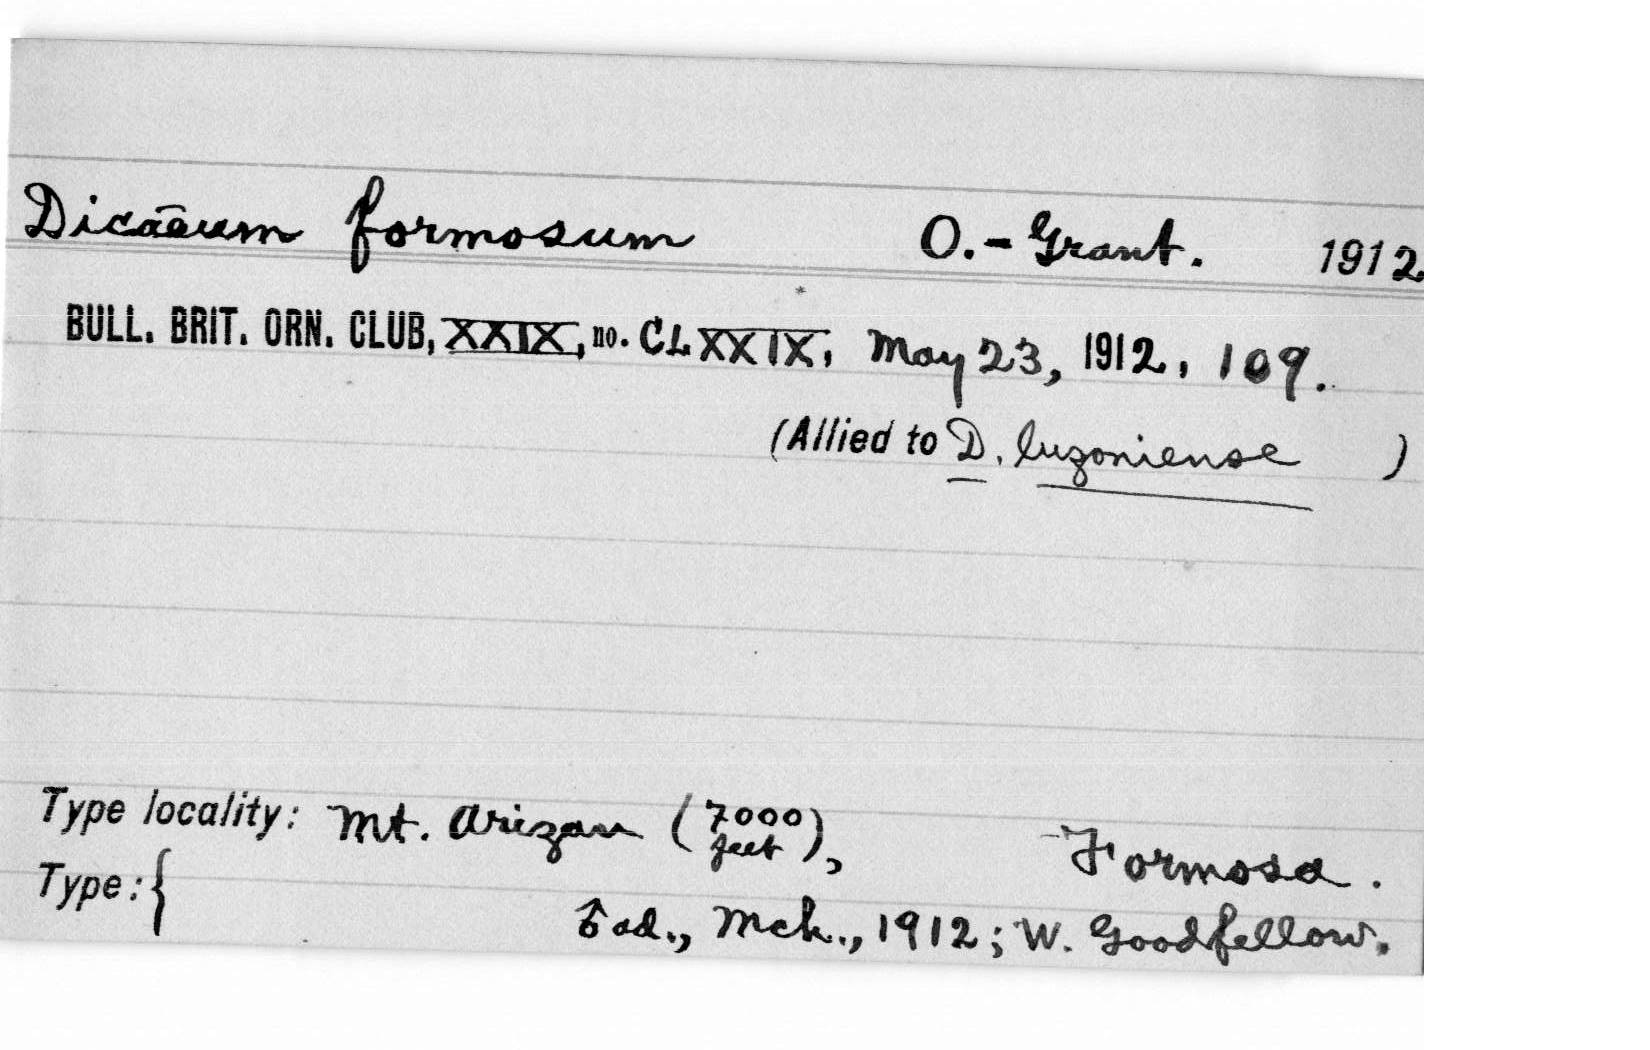 Dicaeum formosum O.-Grant. 1912
BULL. BRIT. ORN. CLUB, XXIX, no. CLXXIX, May 23, 1912, 109.
(Allied to D. luzoniense )
Type locality: Mt. Arizan (7000 feet), Formosa.
Type:{ ♂ ad., Mch., 1912; W. Goodfellow.